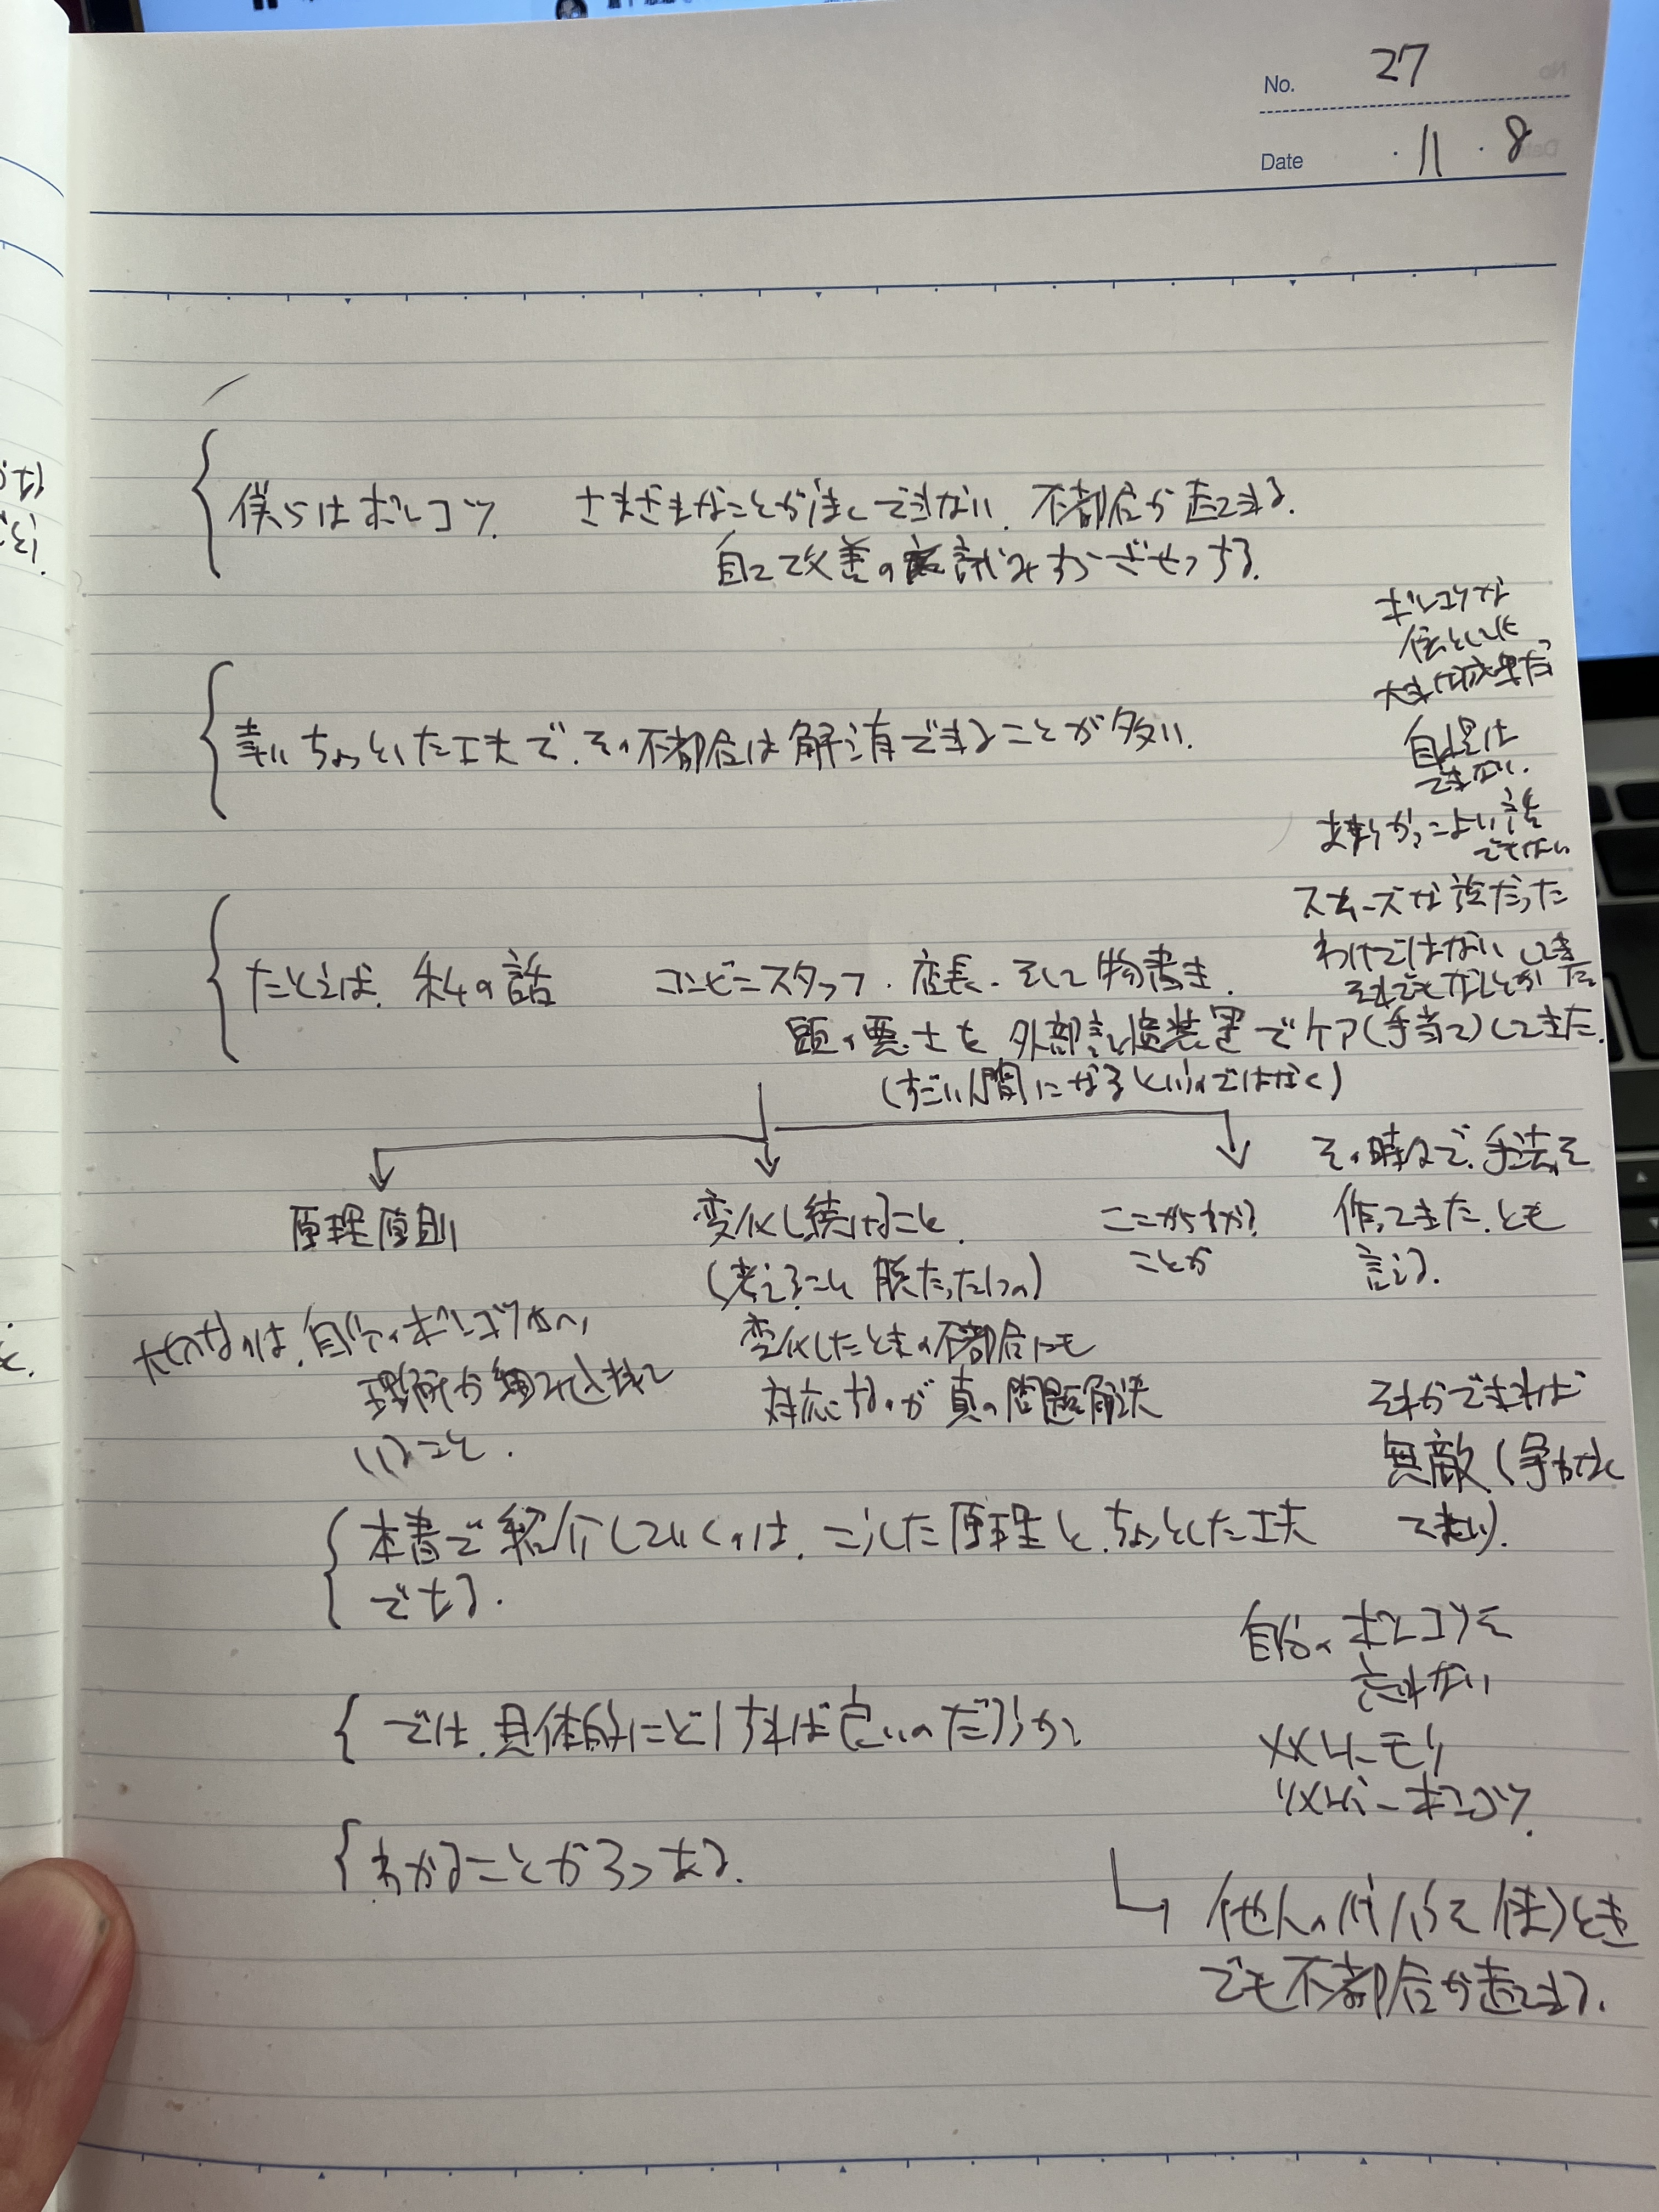 No. 27
Date ・11・8
僕らはポンコツ さまざまなことがうまくできない、不都合が起こる。
自己改善の試みもざせつする。
幸い、ちょっとした工夫で、その不都合は解消できることが多い。
ポンコツな
自慢は
できない。
かっこよい話
でもない
スムーズな道だった
わけではない
それでもなんとか
たとえば、私の話 コンビニスタッフ、店長、そして物書き。
頭の悪さを外部記憶装置でケア(手当て)してきた。
(すごい人間になるというのではなく)
原理原則
変化し続けること。
(考えること 形だったけの)
変化したときの不都合にも
対応するのが真の問題解決
ここからわかる
ことが
その時々で、手法を
作ってきた、とも
言える。
大切なのは、自分のポンコツさへの
理解が組み込まれて
いること。
それができれば
無敵(争わなくて
本書で紹介していくのは、こうした原理と、ちょっとした工夫
である。
では、具体的にどうすれば良いのだろうか。
わかることが3つある。
自分のポンコツを
忘れない
メメント・モリ
リメンバー・ポンコツ。
他人のノウハウを使うとき
でも不都合が起こる。